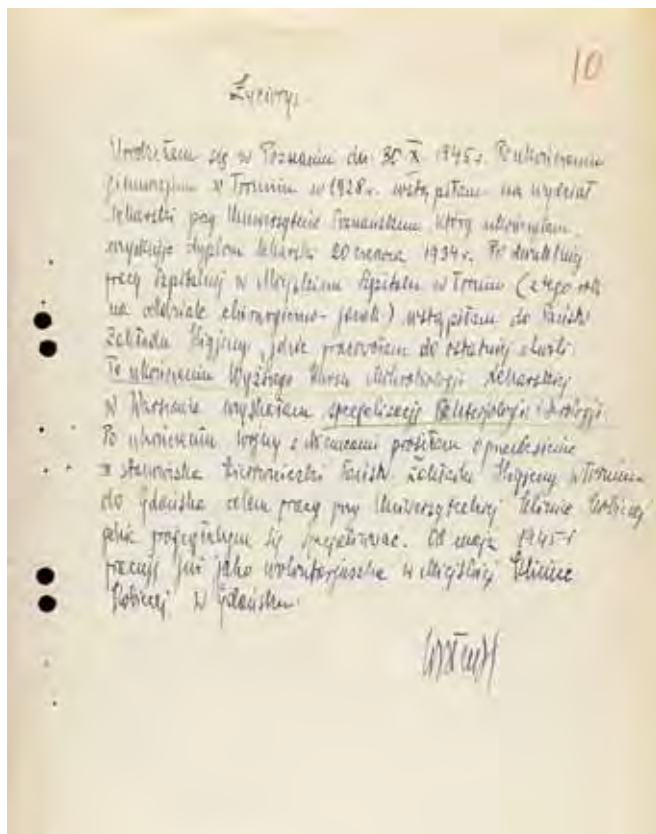 10
Życiorys.
Urodziłam się w Poznaniu dn. 30 X 1945 r. Po ukończeniu
gimnazjum w Toruniu w 1928 r. wstąpiłam na wydział
lekarski przy Uniwersytecie Poznańskim, który ukończyłam
uzyskując dyplom lekarski 20 czerwca 1934 r. Po
pracy szpitalnej w Miejskim Szpitalu w Toruniu (z tego rok
na oddziale chirurgiczno-) wstąpiłam do Państw.
Zakładu Higjeny, gdzie pracowałam do ostatniej chwili.
Po ukończeniu Wyższego Kursu Mikrobiologji Lekarskiej
w Warszawie uzyskałam specjalizację Bakterjologji i Serologji.
Po ukończeniu wojny z Niemcami prosiłam o przeniesienie
z stanowiska kierowniczki Państw. Zakładu Higjeny w Toruniu
do Gdańska celem pracy przy Uniwersyteckiej Klinice Kobiecej
gdzie się specjalizować. Od maja 1945 r.
pracuję już jako wolontarjuszka w Miejskiej Klinice
Kobiecej w Gdańsku.